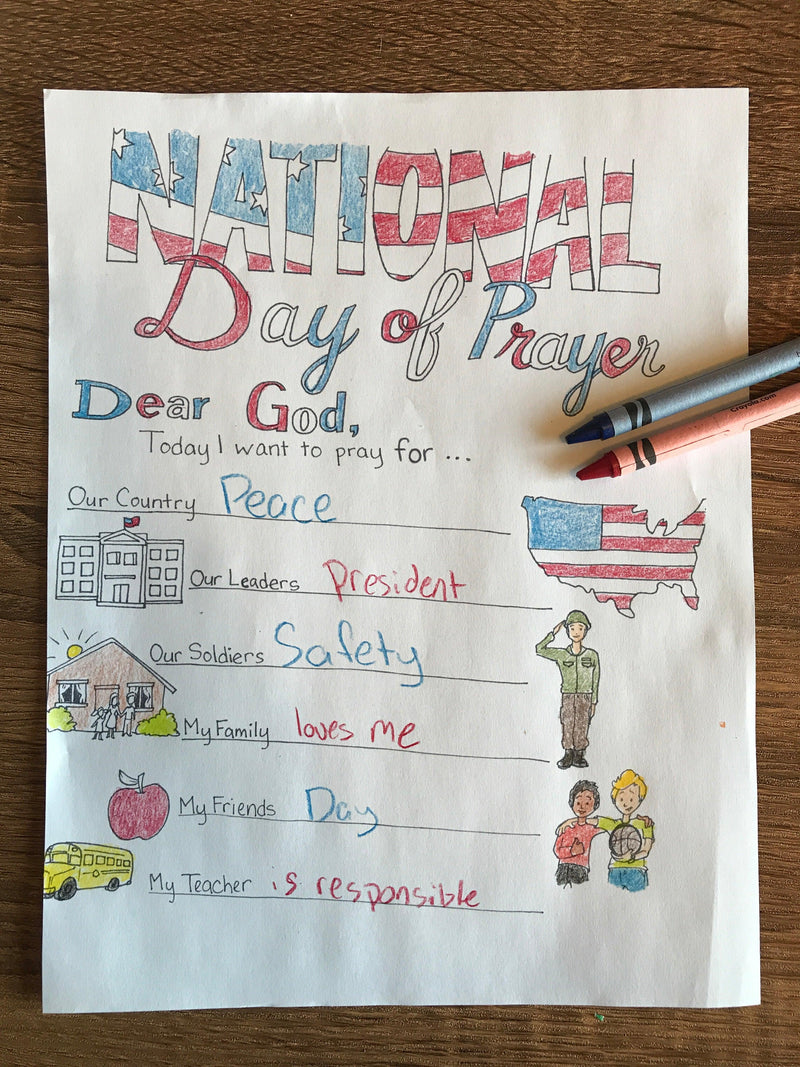 NATIONAL
Day of Prayer
Dear God,
Today I want to pray for ...
Our Country Peace
Our Leaders President
Our Soldiers Safety
My Family loves me
My Friends Day
My Teacher is responsible
Crayola.com